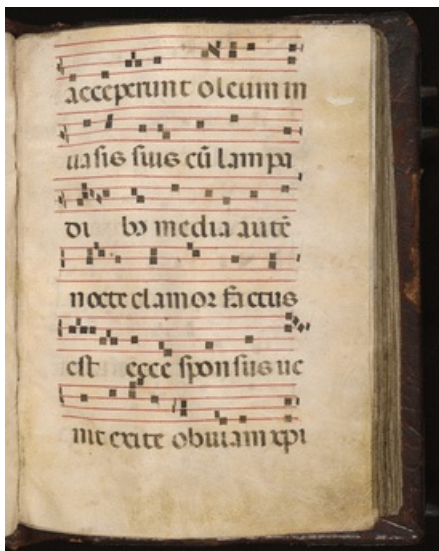 acceperunt oleum in
uasis suis cū lampa
di bꝰ media autē
nocte clamoꝛ factus
est ecce sponsus ue
nit exite obuiam xpi